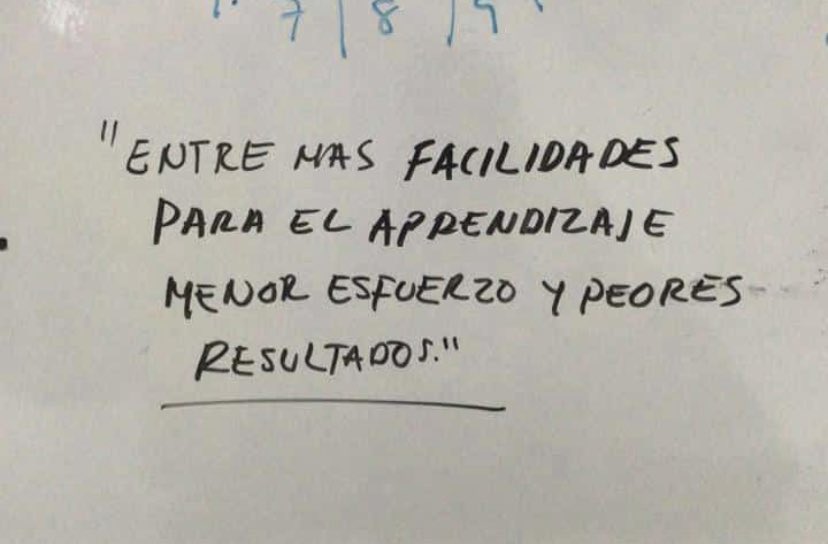 7 | 8 | 9
"ENTRE MAS FACILIDADES
PARA EL APRENDIZAJE
MENOR ESFUERZO Y PEORES
RESULTADOS."